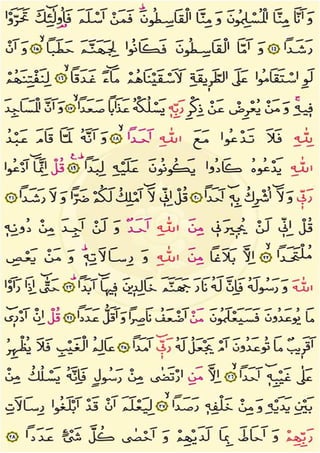 وَأَنَّا مِنَّا الْمُسْلِمُونَ وَمِنَّا الْقَاسِطُونَ ۖ فَمَنْ أَسْلَمَ فَأُولَٰئِكَ تَحَرَّوْا
رَشَدًا ﴿١٤﴾ وَأَمَّا الْقَاسِطُونَ فَكَانُوا لِجَهَنَّمَ حَطَبًا ﴿١٥﴾ وَأَنْ
لَوِ اسْتَقَامُوا عَلَى الطَّرِيقَةِ لَأَسْقَيْنَاهُمْ مَاءً غَدَقًا ﴿١٦﴾ لِنَفْتِنَهُمْ
فِيهِ ۚ وَمَنْ يُعْرِضْ عَنْ ذِكْرِ رَبِّهِ يَسْلُكْهُ عَذَابًا صَعَدًا ﴿١٧﴾ وَأَنَّ الْمَسَاجِدَ
لِلَّهِ فَلَا تَدْعُوا مَعَ اللَّهِ أَحَدًا ﴿١٨﴾ وَأَنَّهُ لَمَّا قَامَ عَبْدُ
اللَّهِ يَدْعُوهُ كَادُوا يَكُونُونَ عَلَيْهِ لِبَدًا ﴿١٩﴾ قُلْ إِنَّمَا أَدْعُوا
رَبِّي وَلَا أُشْرِكُ بِهِ أَحَدًا ﴿٢٠﴾ قُلْ إِنِّي لَا أَمْلِكُ لَكُمْ ضَرًّا وَلَا رَشَدًا ﴿٢١﴾
قُلْ إِنِّي لَنْ يُجِيرَنِي مِنَ اللَّهِ أَحَدٌ وَلَنْ أَجِدَ مِنْ دُونِهِ
مُلْتَحَدًا ﴿٢٢﴾ إِلَّا بَلَاغًا مِنَ اللَّهِ وَرِسَالَاتِهِ ۚ وَمَنْ يَعْصِ
اللَّهَ وَرَسُولَهُ فَإِنَّ لَهُ نَارَ جَهَنَّمَ خَالِدِينَ فِيهَا أَبَدًا ﴿٢٣﴾ حَتَّىٰ إِذَا رَأَوْا
مَا يُوعَدُونَ فَسَيَعْلَمُونَ مَنْ أَضْعَفُ نَاصِرًا وَأَقَلُّ عَدَدًا ﴿٢٤﴾ قُلْ إِنْ أَدْرِي
أَقَرِيبٌ مَا تُوعَدُونَ أَمْ يَجْعَلُ لَهُ رَبِّي أَمَدًا ﴿٢٥﴾ عَالِمُ الْغَيْبِ فَلَا يُظْهِرُ
عَلَىٰ غَيْبِهِ أَحَدًا ﴿٢٦﴾ إِلَّا مَنِ ارْتَضَىٰ مِنْ رَسُولٍ فَإِنَّهُ يَسْلُكُ مِنْ
بَيْنِ يَدَيْهِ وَمِنْ خَلْفِهِ رَصَدًا ﴿٢٧﴾ لِيَعْلَمَ أَنْ قَدْ أَبْلَغُوا رِسَالَاتِ
رَبِّهِمْ وَأَحَاطَ بِمَا لَدَيْهِمْ وَأَحْصَىٰ كُلَّ شَيْءٍ عَدَدًا ﴿٢٨﴾